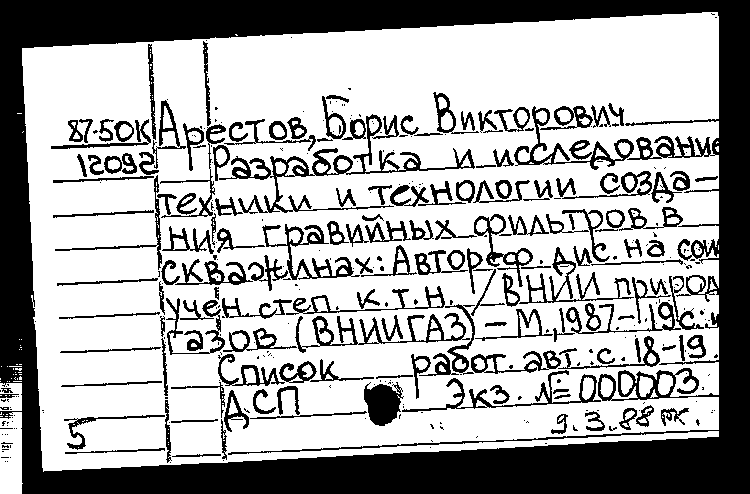 87-50К Арестов, Борис Викторович
12092 Разработка и исследование
техники и технологии созда-
ния гравийных фильтров в
скважинах: Автореф. дис. на сои
учен. степ. к.т.н. / ВНИИ природ
газов (ВНИИГАЗ) - М., 1987. - 19 с.: и
Список работ. авт.: с. 18-19.
ДСП Экз. № 000003.
5 9.3.88